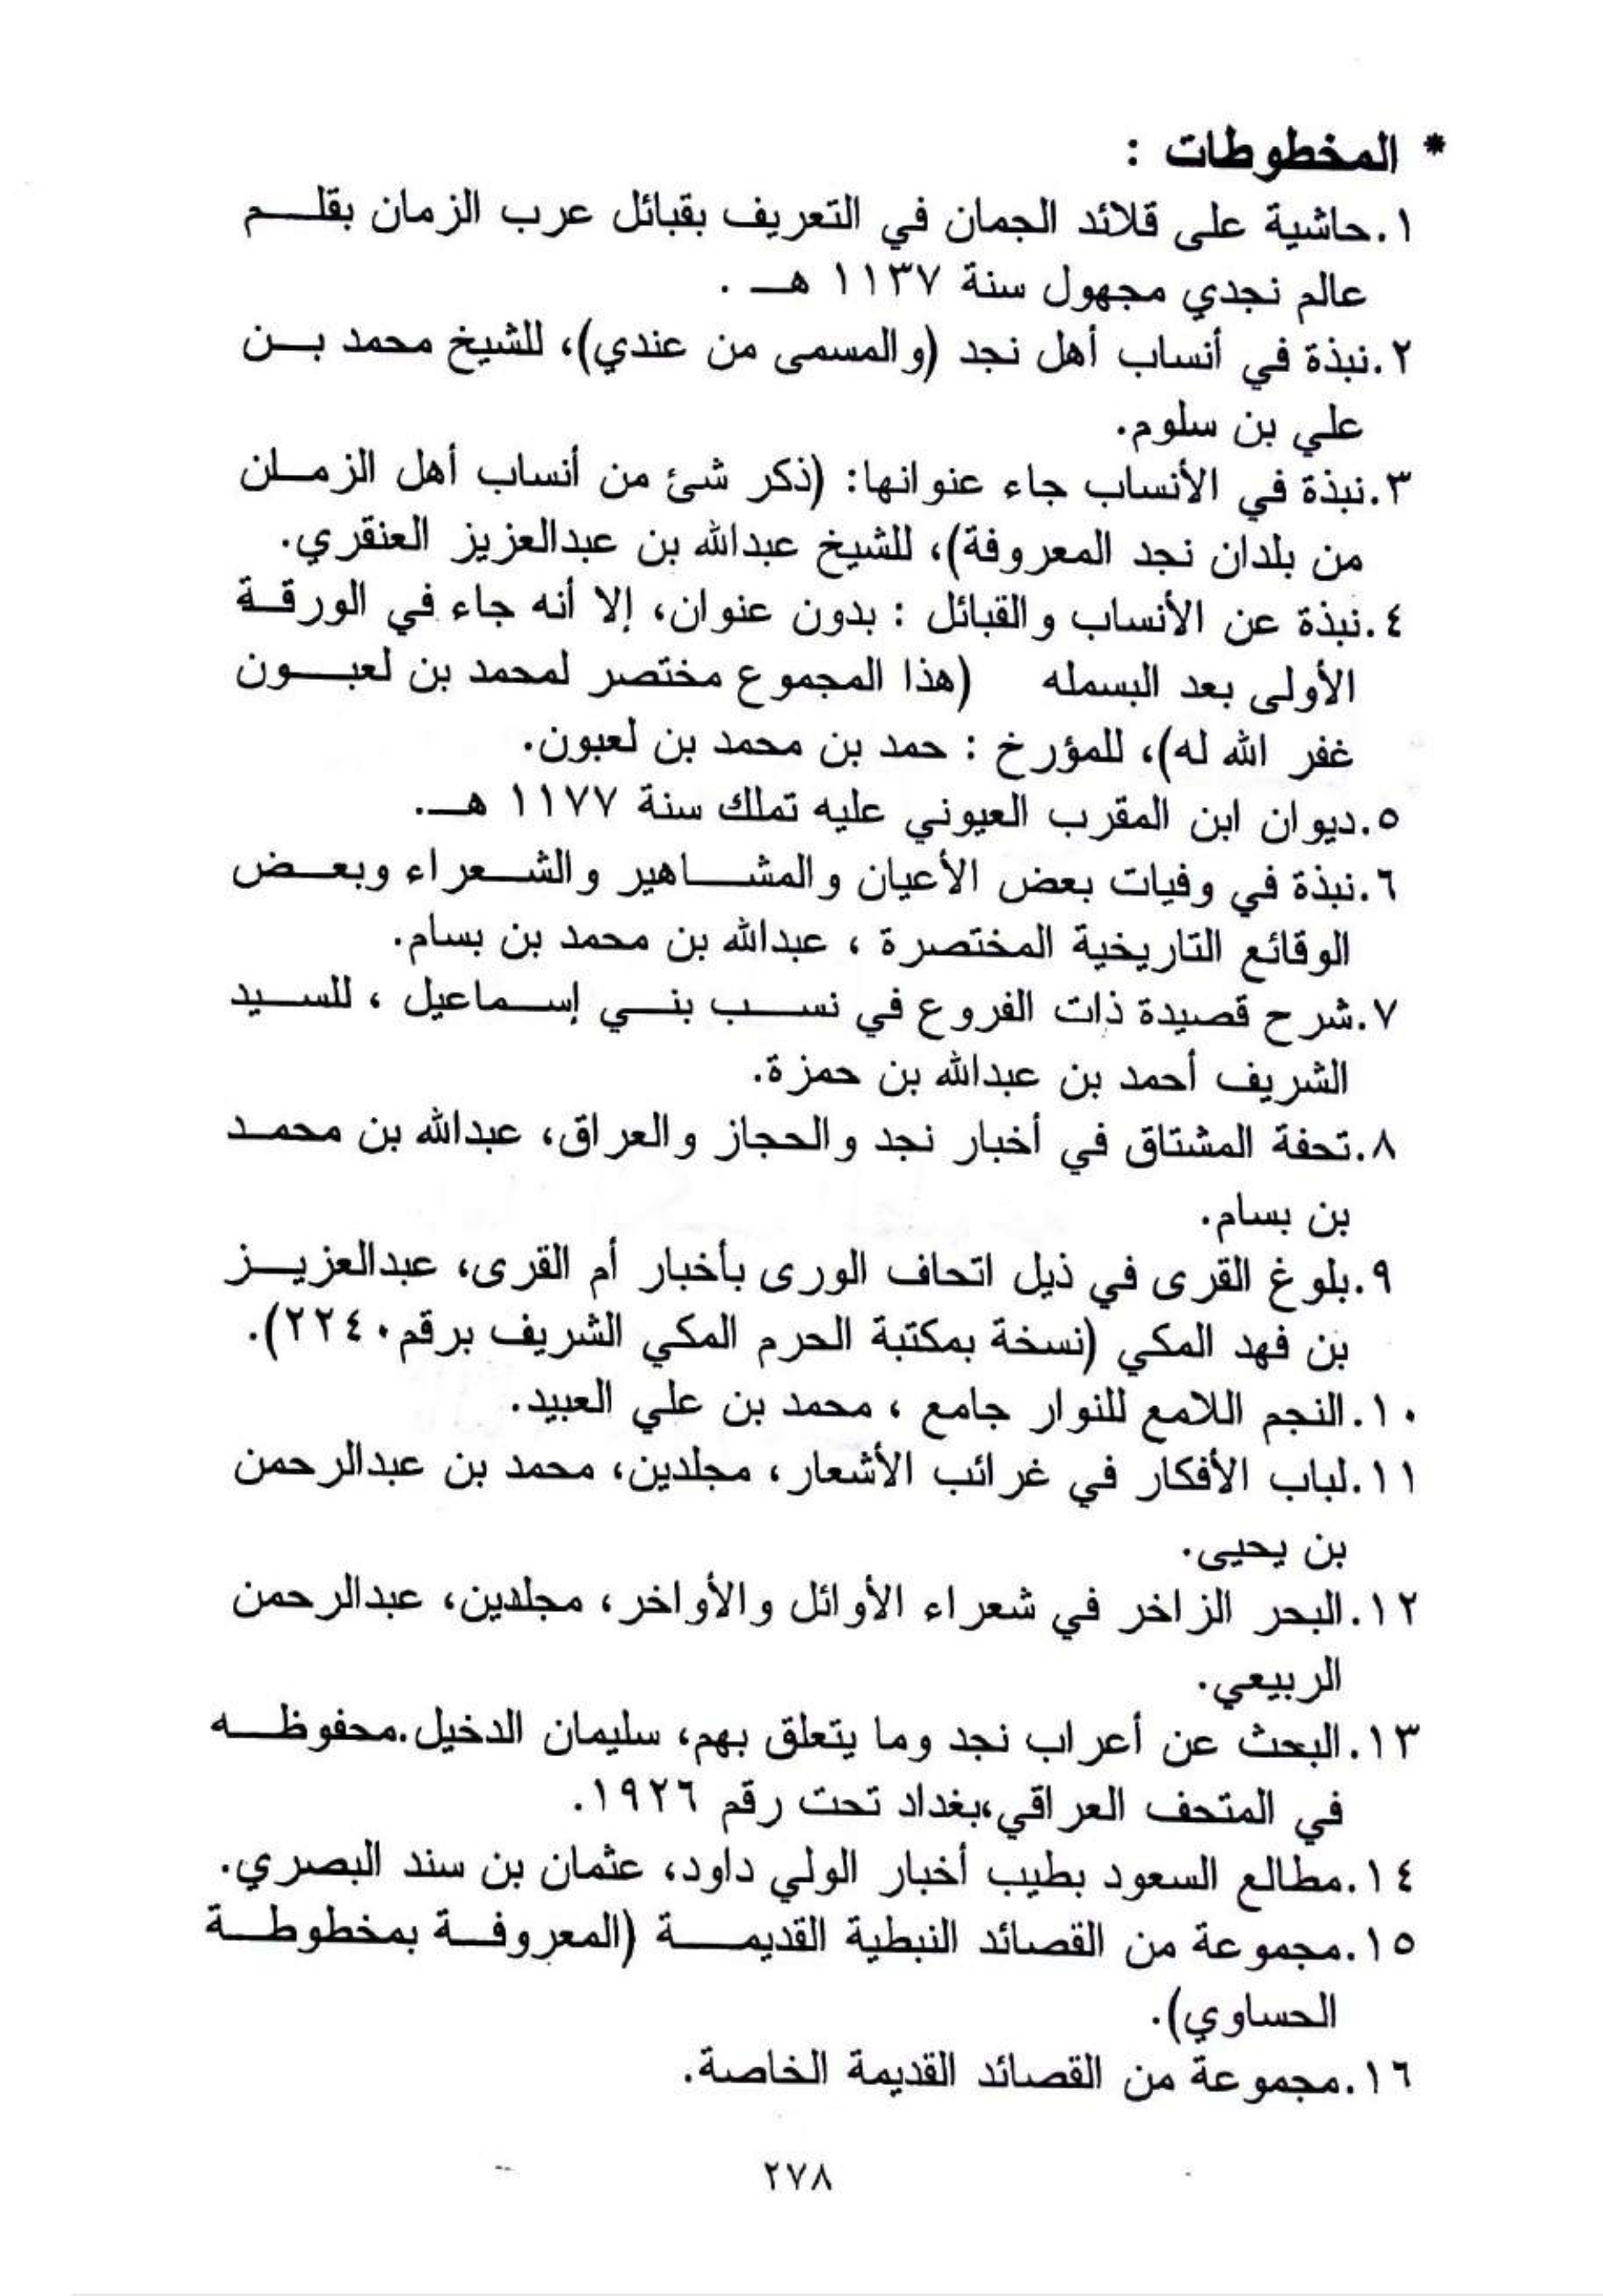 * المخطوطات :
١.حاشية على قلائد الجمان في التعريف بقبائل عرب الزمان بقلم
عالم نجدي مجهول سنة ١١٣٧ هـ .
٢.نبذة في أنساب أهل نجد (والمسمى من عندي)، للشيخ محمد بن
علي بن سلوم.
٣.نبذة في الأنساب جاء عنوانها: (ذكر شئ من أنساب أهل الزملن
من بلدان نجد المعروفة)، للشيخ عبدالله بن عبدالعزيز العنقري.
٤.نبذة عن الأنساب والقبائل : بدون عنوان، إلا أنه جاء في الورقة
الأولى بعد البسمله (هذا المجموع مختصر لمحمد بن لعبون
غفر الله له)، للمؤرخ : حمد بن محمد بن لعبون.
٥.ديوان ابن المقرب العيوني عليه تملك سنة ١١٧٧ هـ.
٦.نبذة في وفيات بعض الأعيان والمشاهير والشعراء وبعض
الوقائع التاريخية المختصرة ، عبدالله بن محمد بن بسام.
٧.شرح قصيدة ذات الفروع في نسب بني إسماعيل ، للسيد
الشريف أحمد بن عبدالله بن حمزة.
٨.تحفة المشتاق في أخبار نجد والحجاز والعراق، عبدالله بن محمد
بن بسام.
٩.بلوغ القرى في ذيل اتحاف الورى بأخبار أم القرى، عبدالعزيز
بن فهد المكي (نسخة بمكتبة الحرم المكي الشريف برقم٢٢٤٠).
١٠.النجم اللامع للنوار جامع ، محمد بن علي العبيد.
١١.لباب الأفكار في غرائب الأشعار، مجلدين، محمد بن عبدالرحمن
بن يحيى.
١٢.البحر الزاخر في شعراء الأوائل والأواخر، مجلدين، عبدالرحمن
الربيعي.
١٣.البحث عن أعراب نجد وما يتعلق بهم، سليمان الدخيل.محفوظه
في المتحف العراقي،بغداد تحت رقم ١٩٢٦.
١٤.مطالع السعود بطيب أخبار الولي داود، عثمان بن سند البصري.
١٥.مجموعة من القصائد النبطية القديمة (المعروفة بمخطوطة
الحساوي).
١٦.مجموعة من القصائد القديمة الخاصة.
٢٧٨